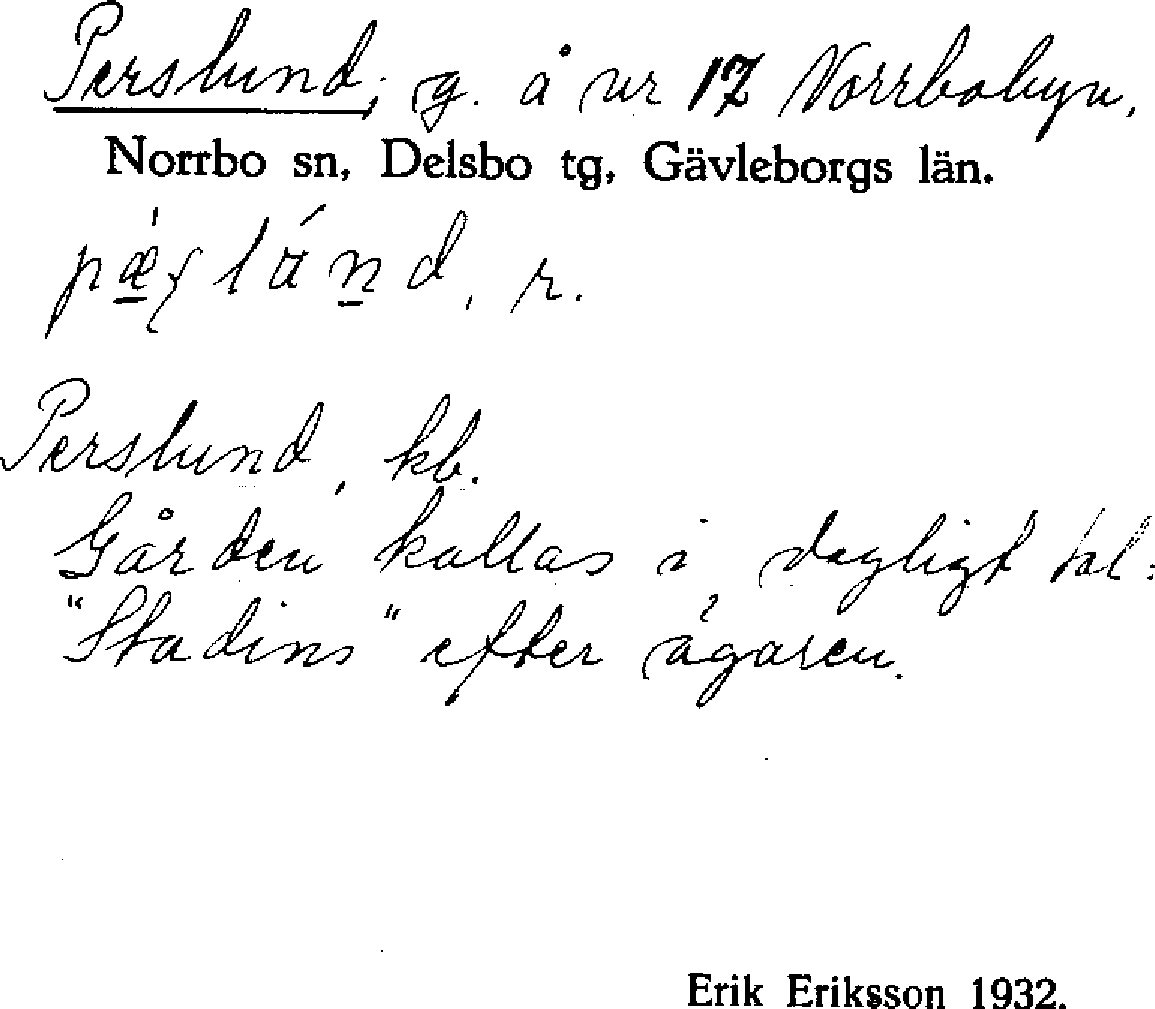 Perslund, g. å nr 17 Norrbobyn.
Norrbo sn, Delsbo tg, Gävleborgs län.
r.
Perslund, kb.
Gården kallas i dagligt tal:
"Stadins" efter ägaren.
Erik Eriksson 1932.